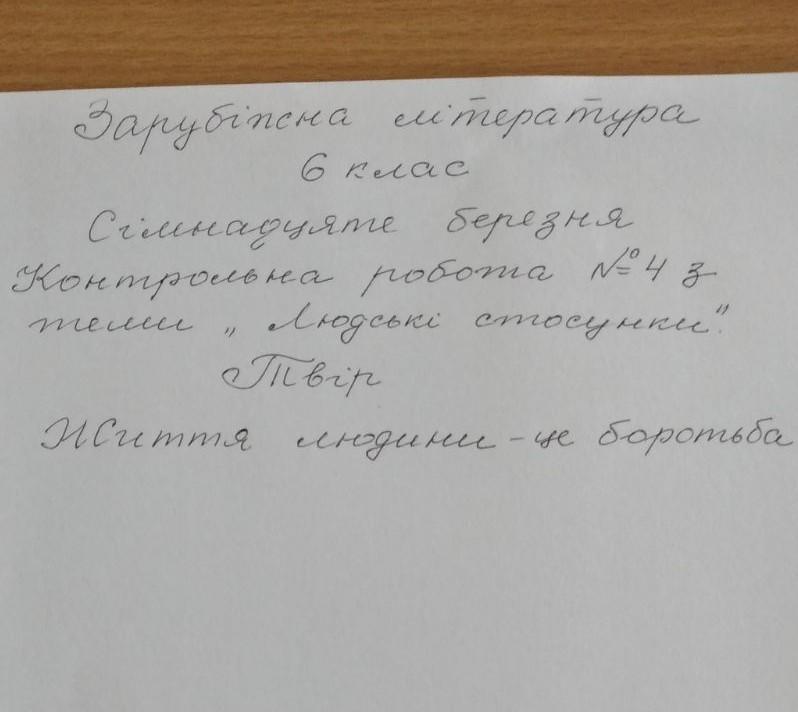 Зарубіжна література
6 клас
Сімнадцяте березня
Контрольна робота №4 з
теми „Людські стосунки".
Твір
Життя людини - це боротьба